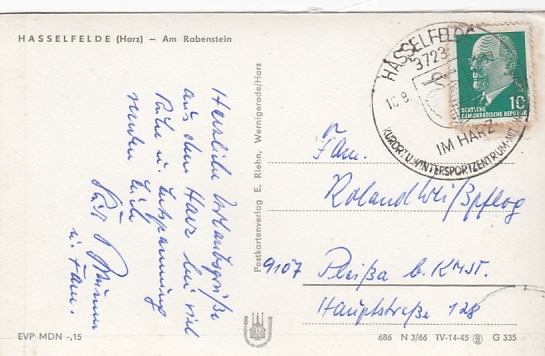 HASSELFELDE (Harz) – Am Rabenstein
Herzliche Urlaubsgrüße
aus dem Harz bei viel
Ruhe u. Entspannung
senden Euch
u. Fam.
EVP MDN -,15
Postkartenverlag E. Riehn, Wernigerode/Harz
HASSELFELDE
3723
IM HARZ
KURORT U. WINTERSPORTZENTRUM
10
DEUTSCHE
DEMOKRATISCHE REPUBLIK
Fam.
Roland Weißpflog
9107 Pleißa b. K.MST.
Hauptstraße 128
686 N 3/66 IV-14-45 G 335